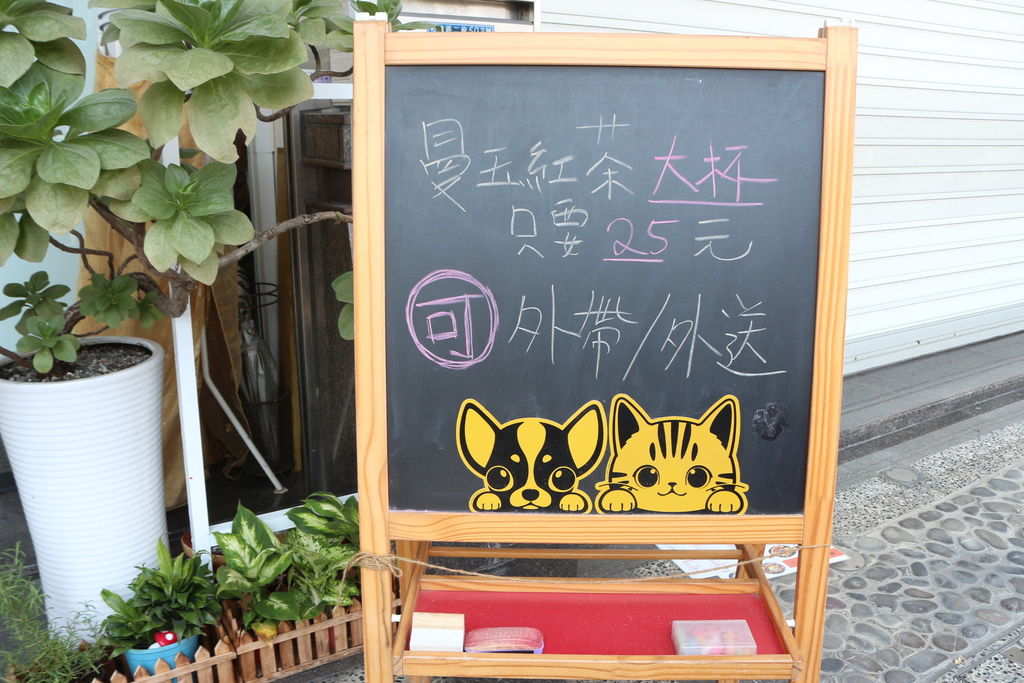 曼玉紅茶大杯
只要25元
可外帶/外送